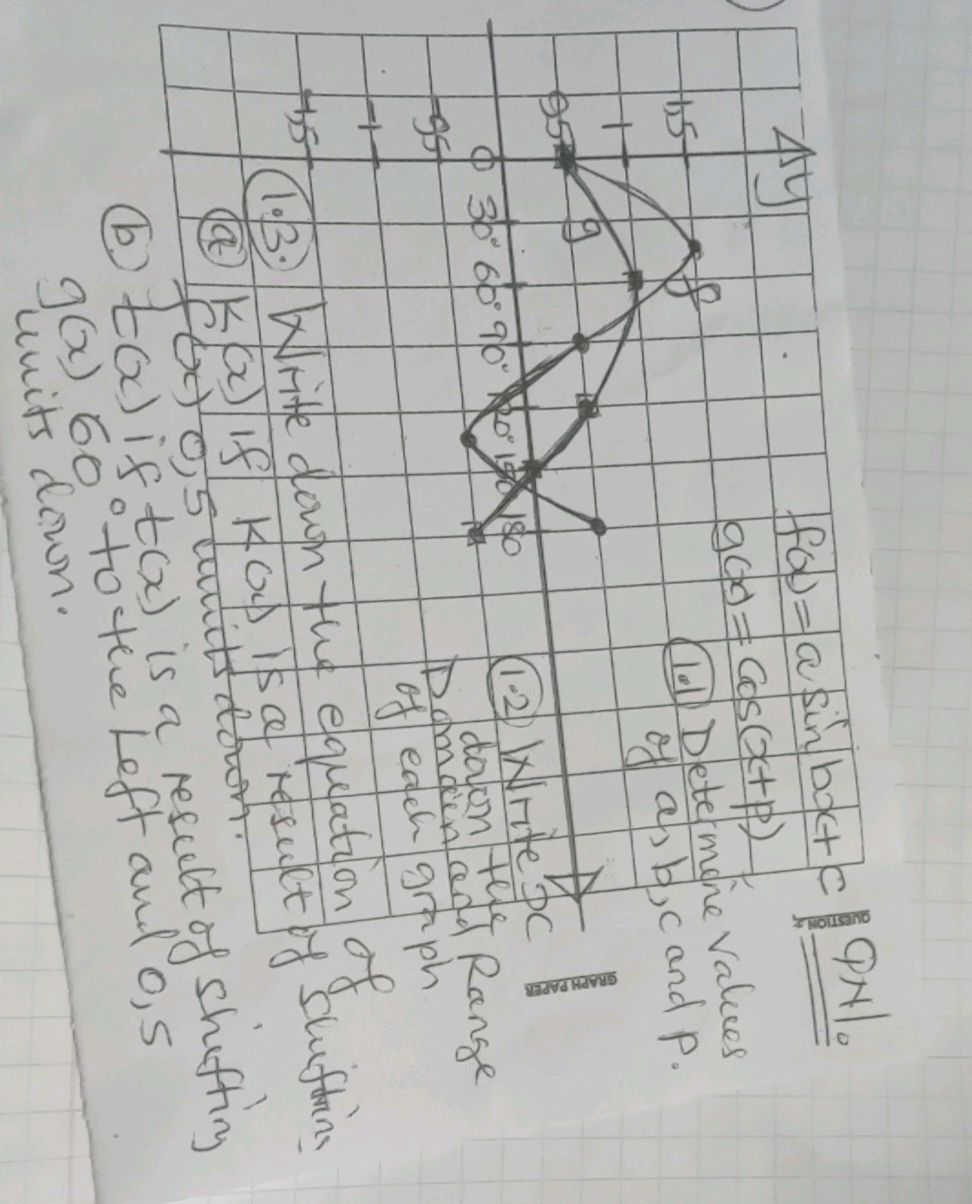 QN1.
QUESTION 2
GRAPH PAPER
y
f(x) = a sin bx + c
g(x) = Cos(x+p)
1,5
1
0,5
0
-0,5
-1
-1,5
f
g
30° 60° 90° 120° 150 180
x
1.1 Determine values
of a, b, c and p.
1.2 Write
down the
Domain and Range
of each graph
1.3. Write down the equation of
a) K(x) if K(x) is a result of shifting
f(x) 0,5 units down.
b) t(x) if t(x) is a result of shifting
g(x) 60° to the Left and 0,5
units down.